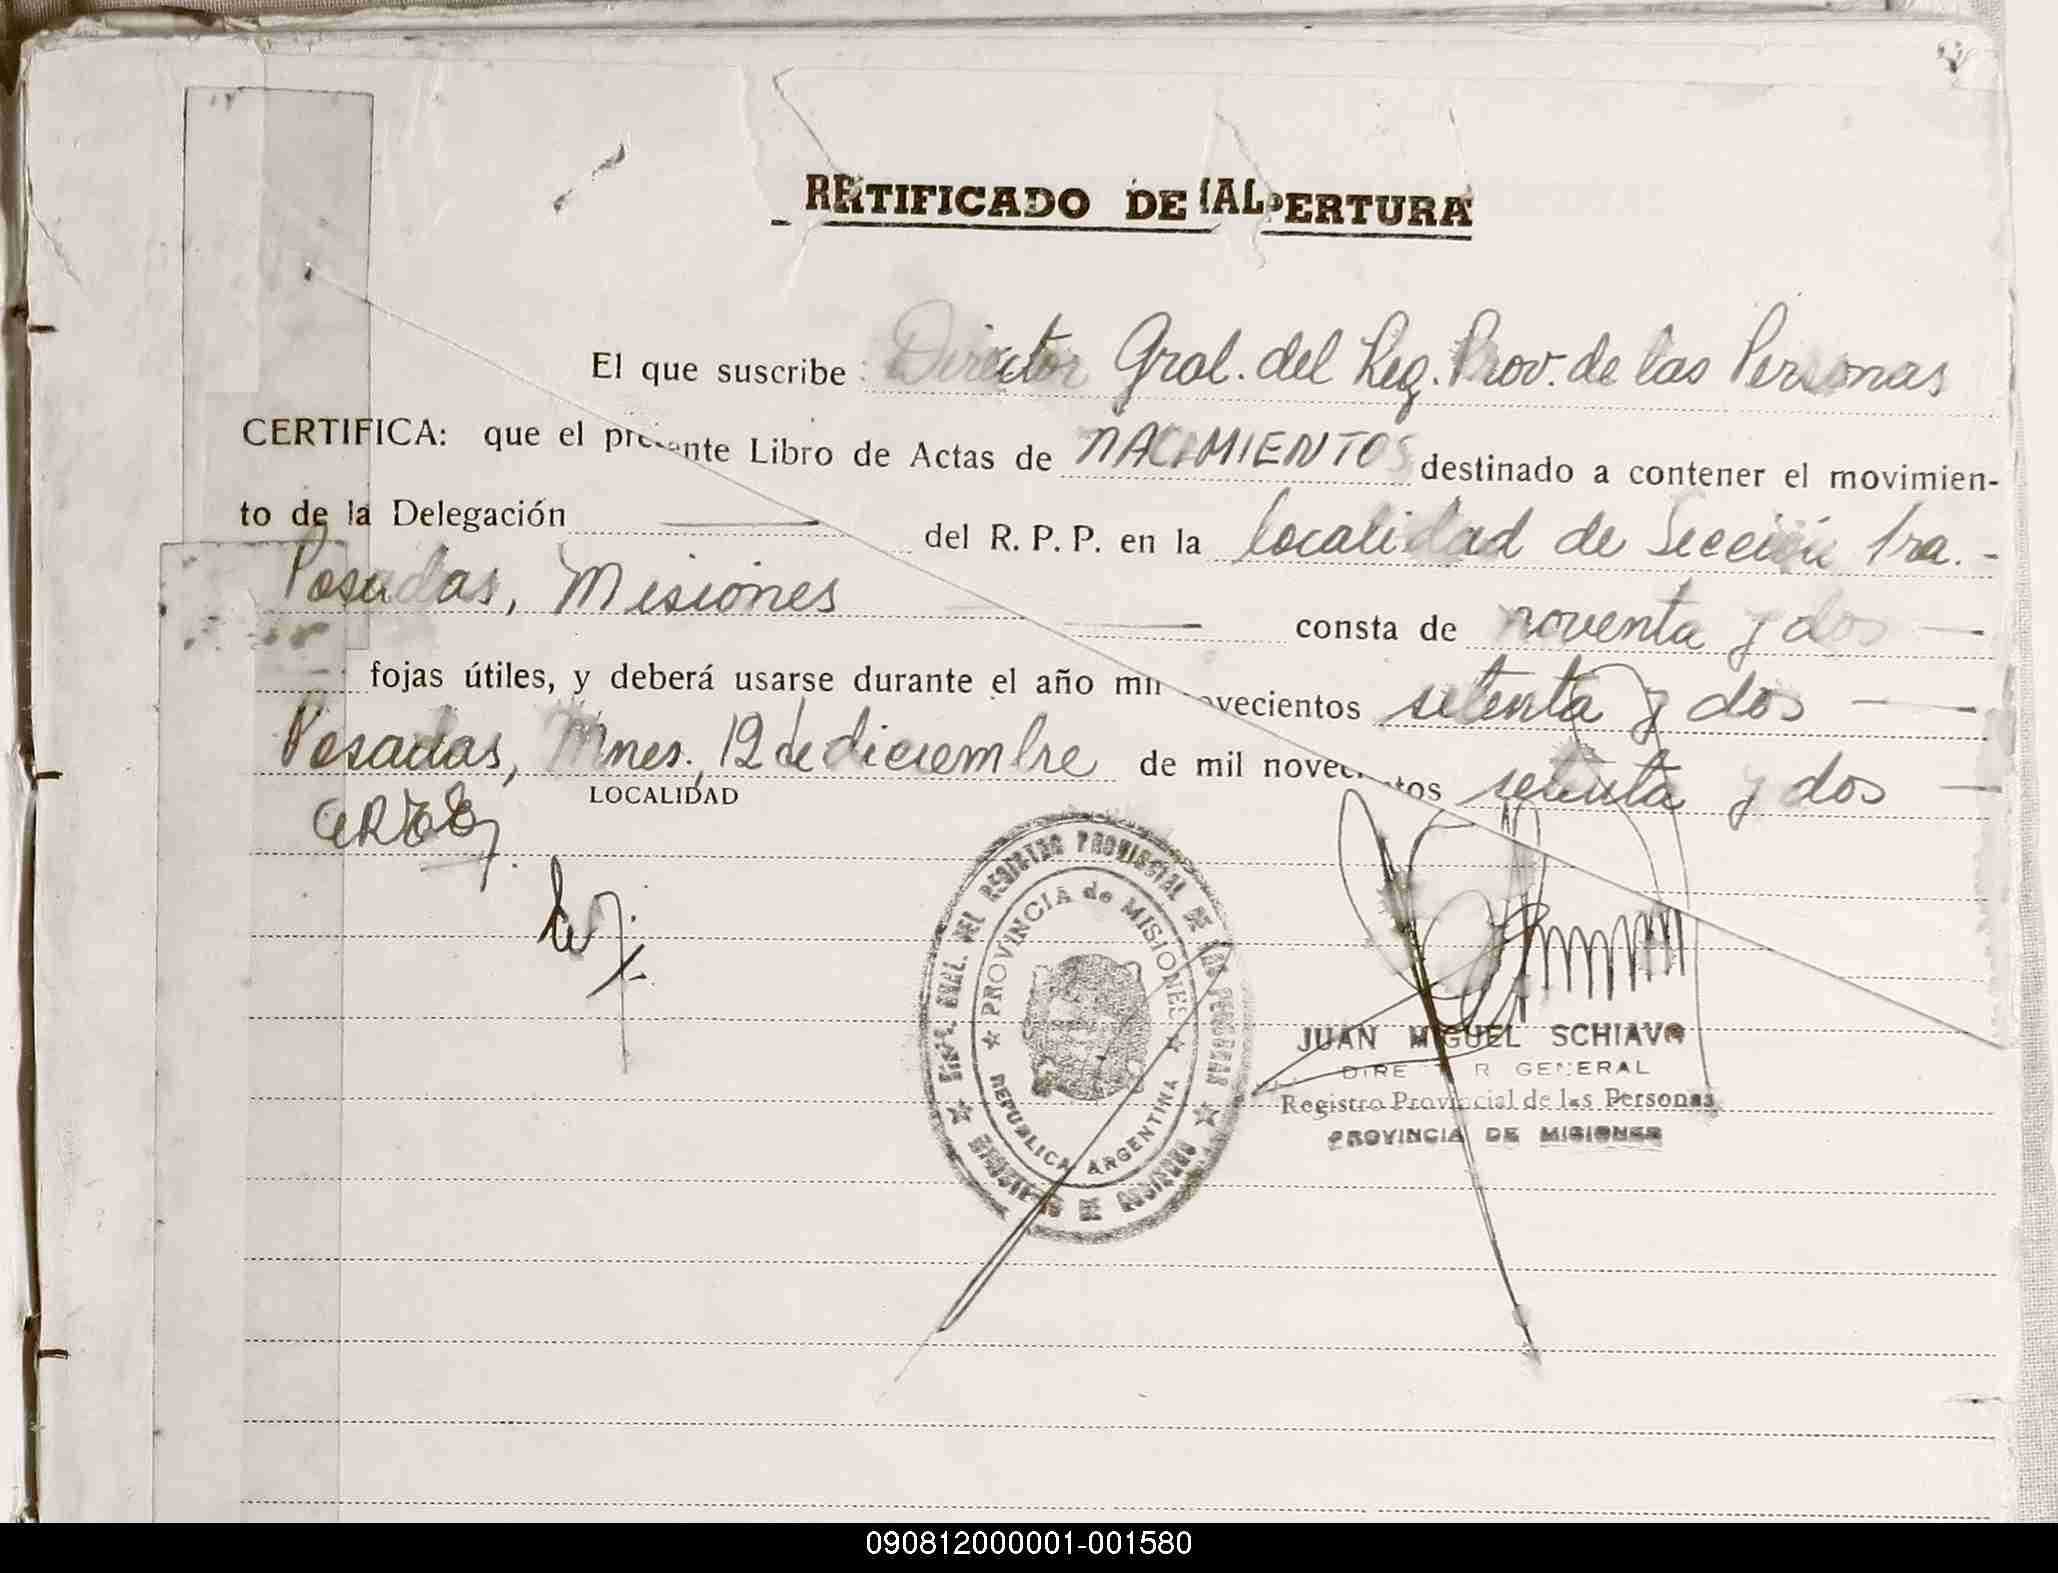 RETIFICADO DE APERTURA
El que suscribe: Director Gral. del Reg. Prov. de las Personas
CERTIFICA: que el presente Libro de Actas de NACIMIENTOS destinado a contener el movimien-
to de la Delegación del R. P. P. en la localidad de Sección 1ra. -
Posadas, Misiones consta de noventa y dos
fojas útiles, y deberá usarse durante el año mil novecientos setenta y dos
Posadas, Mnes., 12 de diciembre de mil novecientos setenta y dos
LOCALIDAD
GRAL. DEL REGISTRO PROVINCIAL DE LAS PERSONAS
PROVINCIA de MISIONES
REPUBLICA ARGENTINA
MINISTERIO DE GOBIERNO
JUAN MIGUEL SCHIAVO
DIRECTOR GENERAL
Registro Provincial de las Personas
PROVINCIA DE MISIONES
090812000001-001580